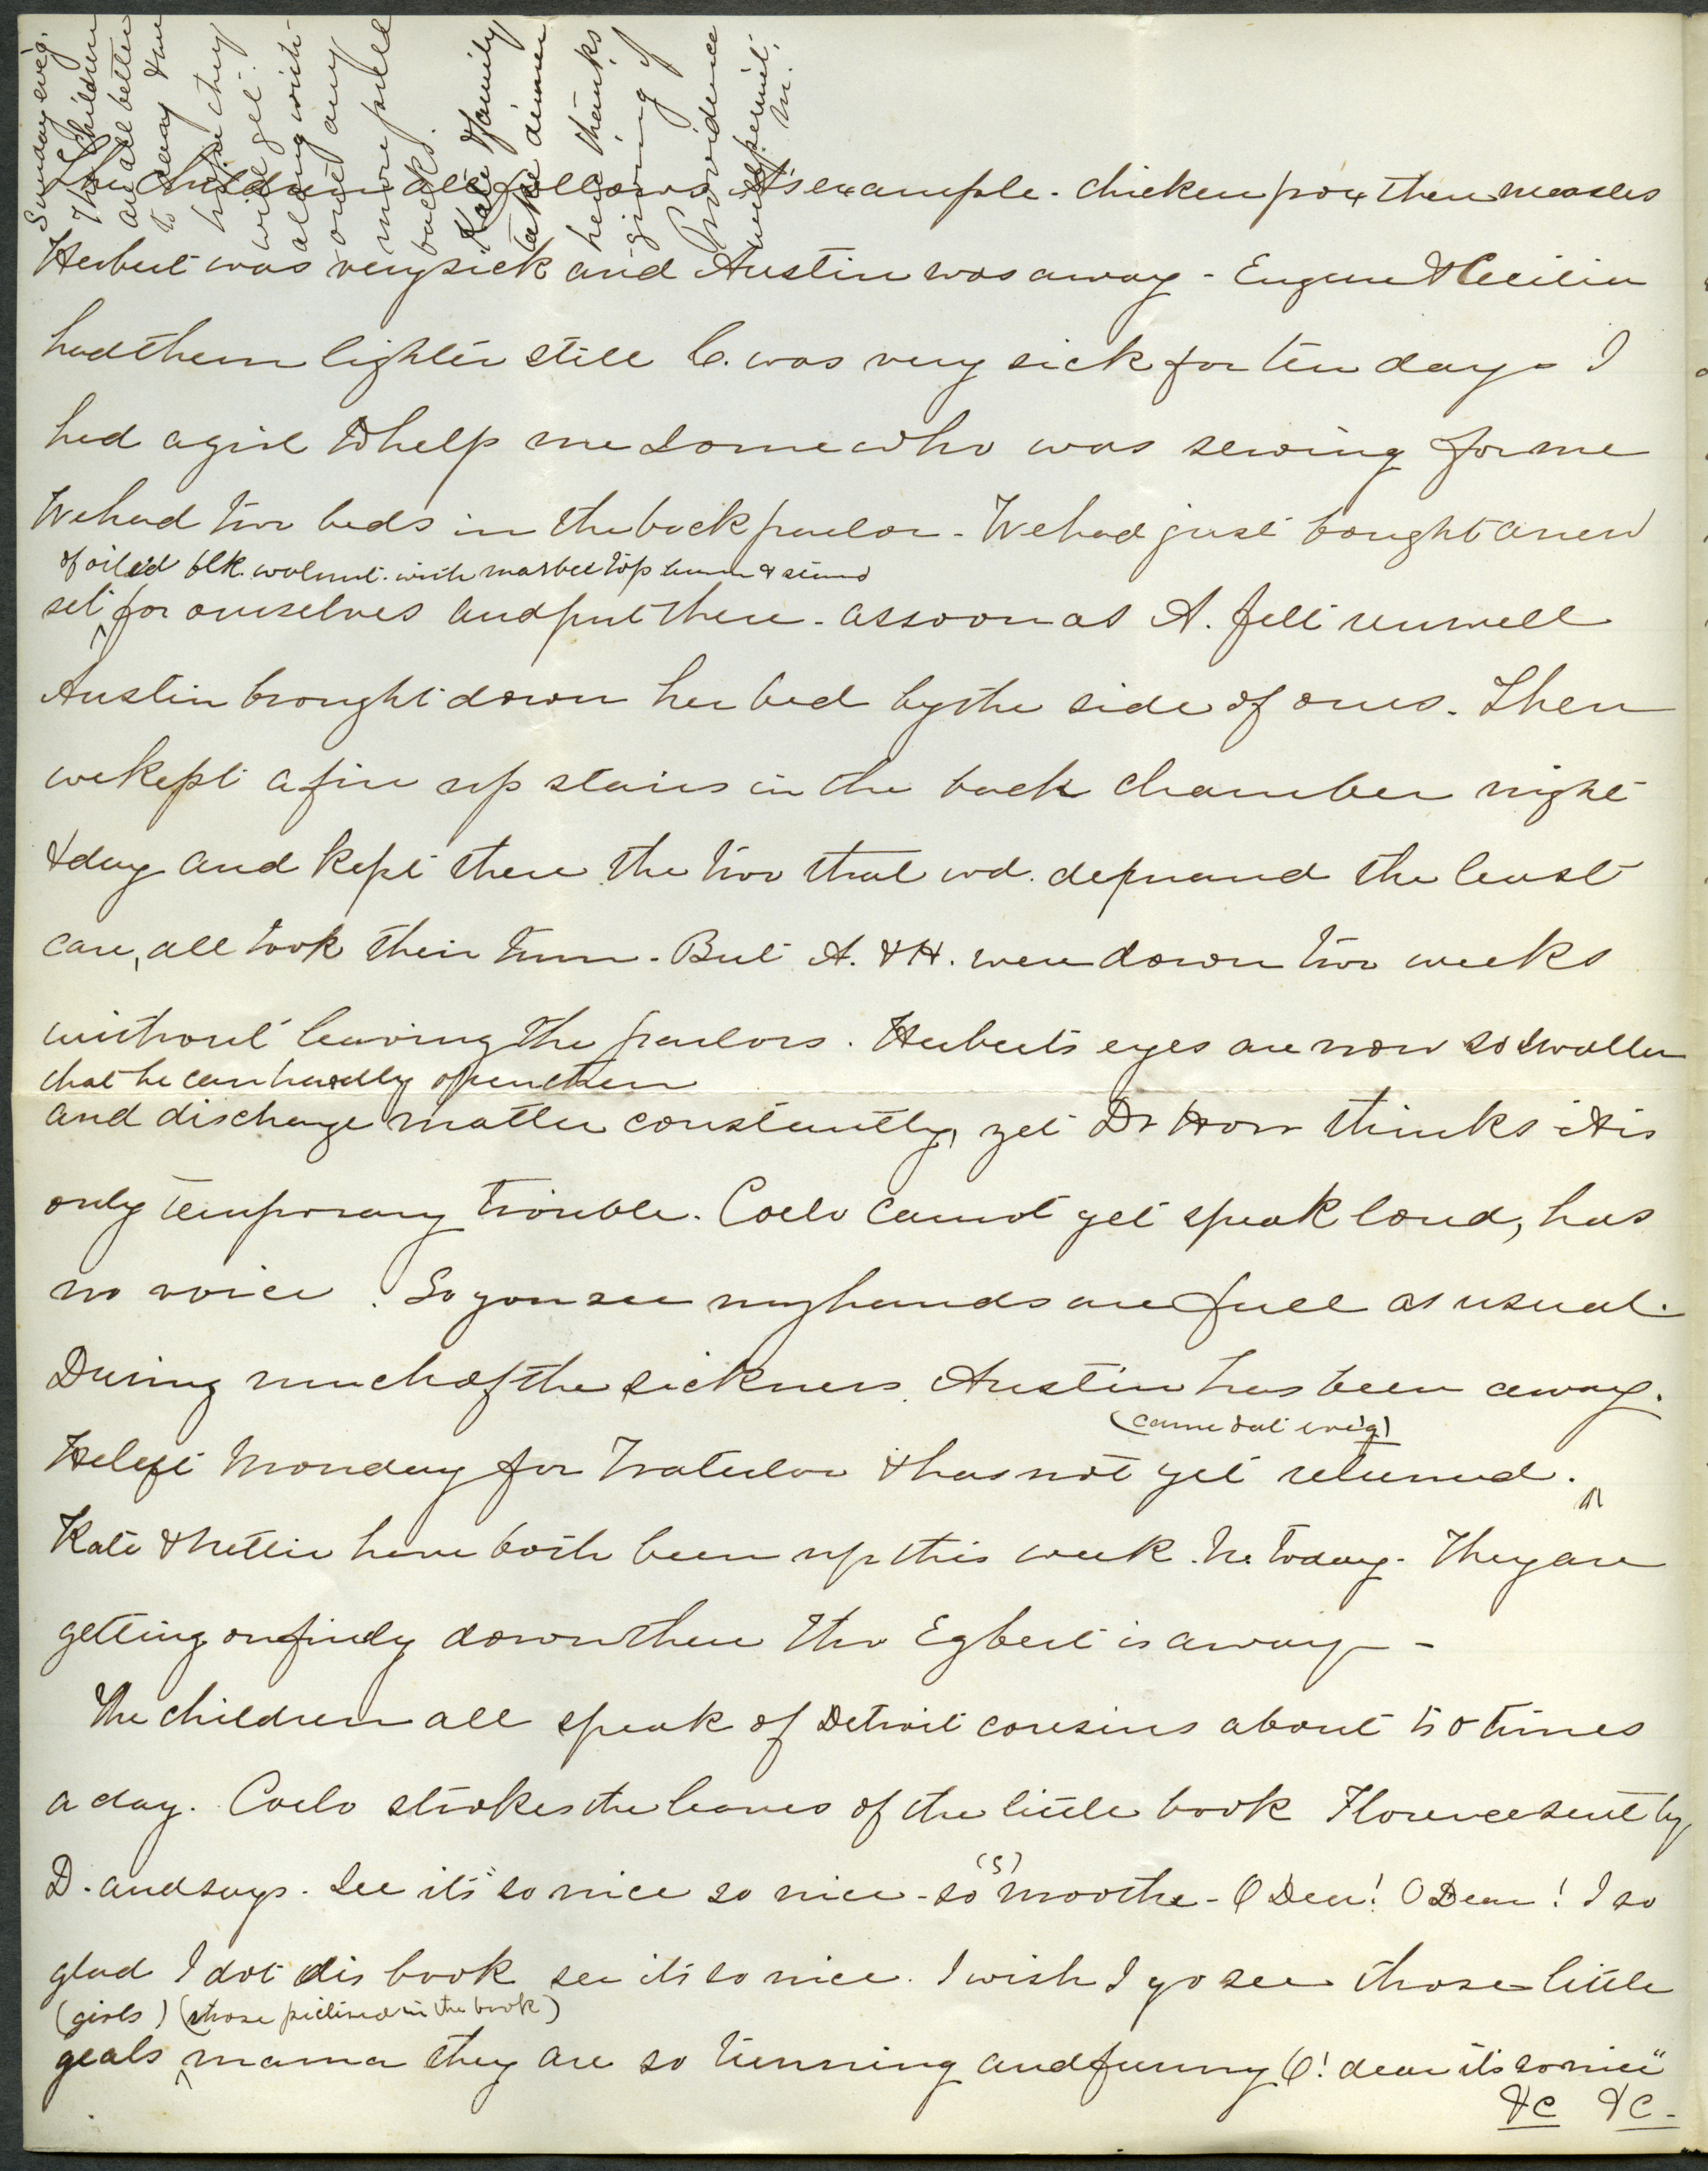 Sunday evég.
The children
are all better
to day & we
hope they
will get
along with-
out any
more pull
backs.
Kate & family
take dinner
here thanks
giving if
Providence
permit.
M.
The children all follows A's example - chicken pox then measles
Herbert was very sick and Austin was away - Eugene & Cecilia
had them lighter still C. was very sick for ten days I
had a girl to help me some who was sewing for me
We had two beds in the back parlor - We had just bought a new
of oiled blk. walnut. with marble top bureau & stand
set for ourselves and put there - as soon as A. felt unwell
Austin brought down her bed by the side of ours. Then
we kept a fire up stairs in the back chamber night
& day and kept there the two that wd. demand the least
care, all took their turn - But A. & H. were down two weeks
without leaving the parlors. Herberts eyes are now so swollen
that he can hardly open them
and discharge matter constantly, yet Dr Horr thinks it is
only temporary trouble. Coelo cannot yet speak loud, has
no voice. So you see my hands are full as usual.
During much of the sickness Austin has been away.
(came Sat. evég)
He left Monday for Waterloo & has not yet returned.
Kate & Nettie have both been up this week. N. today - They are
getting on finely down there tho Egbert is away -
The children all speak of Detroit cousins about 50 times
a day. Coelo strokes the leaves of the little book Florence sent by
(s)
D. and says. See its "so nice so nice - so moothe - O Dear! O Dear! I so
glad I dot dis book see its so nice. I wish I go see those little
(girls) (those pictured in the book)
geals mama they are so tunning and funny O! dear its so nice"
&c &c -